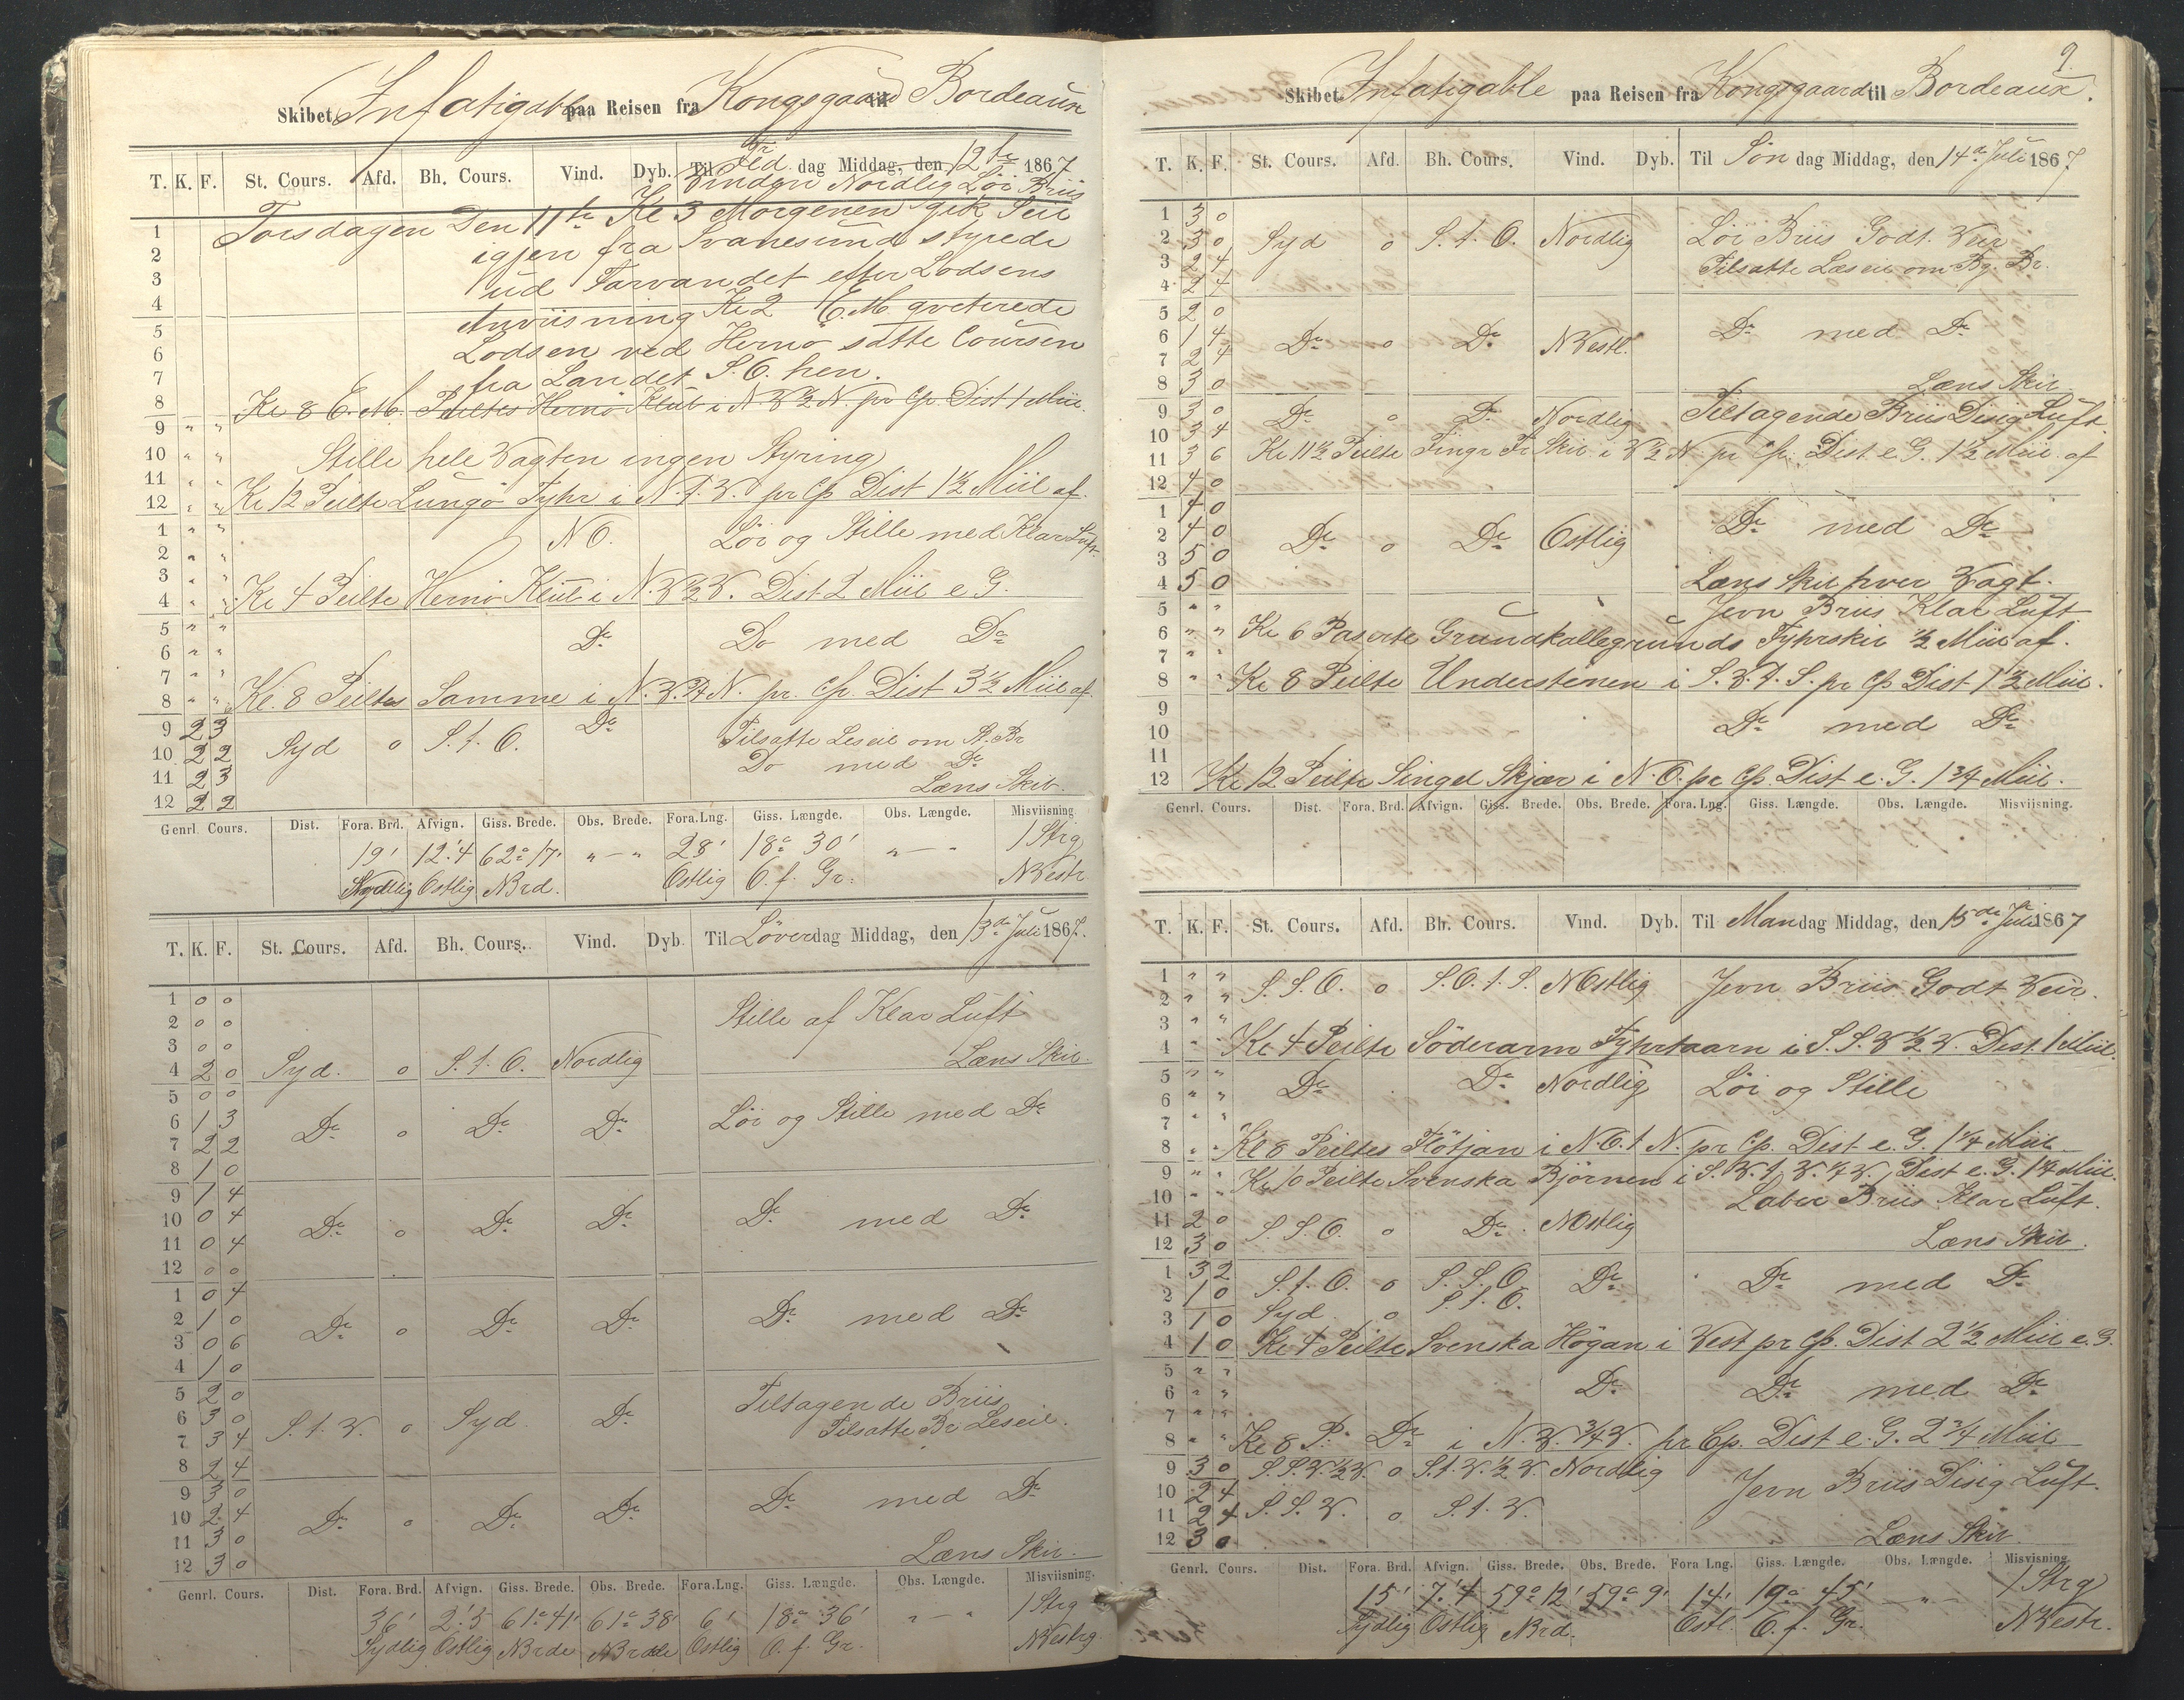 Skibet Infatigable paa Reisen fra Kongsgaard til Bordeaux
T. K. F. St. Cours. Afd. Bh. Cours. Vind. Dyb. Til Fre dag Middag, den 12te 1867
Vinden Nordlig Löi Briis
1 Torsdagen Den 11te Kl 3 Morgenen gik Seil
2 igjen fra Svanesund styrede
3 ud Farvandet efter Lodsens
4 Anviisning Kl 2 E.M. qviterede
5 Lodsen ved Hernö satte Coursen
6
7 fra Landet S.O. hen.
8 Kl 8 E.M. Peiltes Hernö Klub i N.V.½N. pr Cp. Dist 1 Miil.
9 " "
10 " " Stille hele Vagten ingen Styring
11 " "
12 " " Kl 12 Peilte Lungö Fyhr i N.t.V. pr Cp Dist 1½ Miil af.
1 " " NO. Löi og Stille med Klar Luft
2 " "
3 " "
4 " " Kl 4 Peilte Hernö Klub i N.V.½V. Dist 2 Miil e G.
5 " " Do Do med Do
6 " "
7 " "
8 " " Kl. 8 Peiltes Samme i N.V.t.N. pr. Cp. Dist 3½ Miil af.
9 2 3 Do
10 2 2 Syd o S.t.O. Tilsatte Leseil om St. Br
11 2 3 Do med Do
12 2 2 Læns Skib.
Genrl. Cours. Dist. Fora. Brd. Afvign. Giss. Brede. Obs. Brede. Fora. Lng. Giss. Længde. Obs. Længde. Misviisning
19' 12'.4 62° 17' " — " 28' 18° 30' " — " 1 Strg
Sydlig Ostlig NBrd. Ostlig O. f. Gr. NVestr
T. K. F. St. Cours. Afd. Bh. Cours. Vind. Dyb. Til Löverdag Middag, den 13de Juli 1867.
1 0 0
2 0 0 Stille af Klar Luft
3 0 0
4 2 0 Syd. o S.t.O. Nordlig Læns Skib.
5 0 0
6 1 3 Do o Do Do Löi og Stille med Do
7 2 2
8 1 0
9 1 4
10 0 4 Do o Do Do Do med Do
11 0 4
12 0 0
1 0 4
2 1 0 Do o Do Do Do med Do
3 0 6
4 1 0
5 2 0 Tiltagende Briis
6 3 0 S.t.V. o Syd Do Tilsatte Br Leseil.
7 3 4
8 2 4
9 3 0
10 2 4 Do o Do Do Do med Do
11 3 0
12 3 0 Læns Skib.
Genrl. Cours. Dist. Fora. Brd. Afvign. Giss. Brede. Obs. Brede. Fora. Lng. Giss. Længde. Obs. Længde. Misviisning.
36' 2'.5 61° 41' 61° 38' 6' 18° 36' " — " 1 Strg
Sydlig Ostlig NBrde NBrde Ostlig O. f. Gr. NVestrg.
9.
Skibet Infatigable paa Reisen fra Kongsgaard til Bordeaux.
T. K. F. St. Cours. Afd. Bh. Cours. Vind. Dyb. Til Søn dag Middag, den 14de Juli 1867.
1 3 0
2 3 0 Syd o S.t.O. Nordlig Löi Briis Godt Veir
3 2 4 Tilsatte Læseil om Bg. Br.
4 2 4
5 2 0
6 1 4 Do o Do NVestl. Do med Do
7 2 4
8 3 0 Læns Skib
9 3 0 Do o Do Nordlig Tiltagende Briis Disig Luft
10 3 4
11 3 6 Kl 11½ Peilte Fingr. Fr Skib i V½N pr Cp. Dist e G. 1½ Miil af
12 4 0
1 4 0
2 4 0 Do o Do Ostlig Do med Do
3 5 0
4 5 0 Læns Skib hver Vagt.
5 " " Jevn Briis Klar Luft
6 " " Kl 6 Paserte Grundkallegrunds Fyhrskib ½ Miil af.
7 " "
8 " " Kl 8 Peilte Understenen i S.V.t.S. pr Cp Dist 1½ Miil.
9
10 Do med Do
11
12 Kl 12 Peilte Singel Skjær i N.O. pr Cp. Dist e. G. 1¾ Miil.
Genrl. Cours. Dist. Fora. Brd. Afvign. Giss. Brede. Obs. Brede. Fora. Lng. Giss. Længde. Obs. Længde. Misviisning.
T. K. F. St. Cours. Afd. Bh. Cours. Vind. Dyb. Til Mandag Middag, den 15de Juli 1867
1 " " S.S.O. o S.O.t.S. NOstlig Jevn Briis Godt Veir.
2 " "
3 " "
4 " " Kl 4 Peilte Söderarm Fyhrtaarn i S.S.V½V. Dist. 1 Miil.
5 " " Do Do Nordlig Löi og Stille
6 " "
7 " "
8 " " Kl 8 Peiltes Flötjan i N.O.t N. pr Cp. Dist e. G. 1¼ Miil
9 " " Kl 10 Peilte Svenska Björnen i S.V.t.V.¼V. Dist e. G. 1¼ Miil.
10 " " Laber Briis Klar Luft.
11 2 0 S.S.O. o Do NOstlig
12 3 0 Læns Skib.
1 3 2 S.t.O. o S.S.O. Do Do med Do
2 1 0 S.t.O.
3 1 0 Syd o
4 1 0 Kl 4 Peilte Svenska Högan i Vest pr Cp. Dist 2½ Miil e. G.
5 " "
6 " " Do Do med Do
7 " "
8 " " Kl 8 P. Do i N.V.¾V. pr Cp. Dist e. G. 2¾ Miil
9 3 0 S.S.V.½V. o S.t.V.½V. Nordlig
10 2 4 Jevn Briis Disig Luft.
11 2 4 S.S.V. o S.t.V.
12 3 0 Læns Skib
Genrl. Cours. Dist. Fora. Brd. Afvign. Giss. Brede. Obs. Brede. Fora Lng. Giss. Længde. Obs. Længde. Misvisning
15' 7'.4 59° 12' 59° 9' 14' 19° 45' — " — 1 Strg
Sydlig Ostlig NBrd. Ostl. O. f. Gr. NVestr.